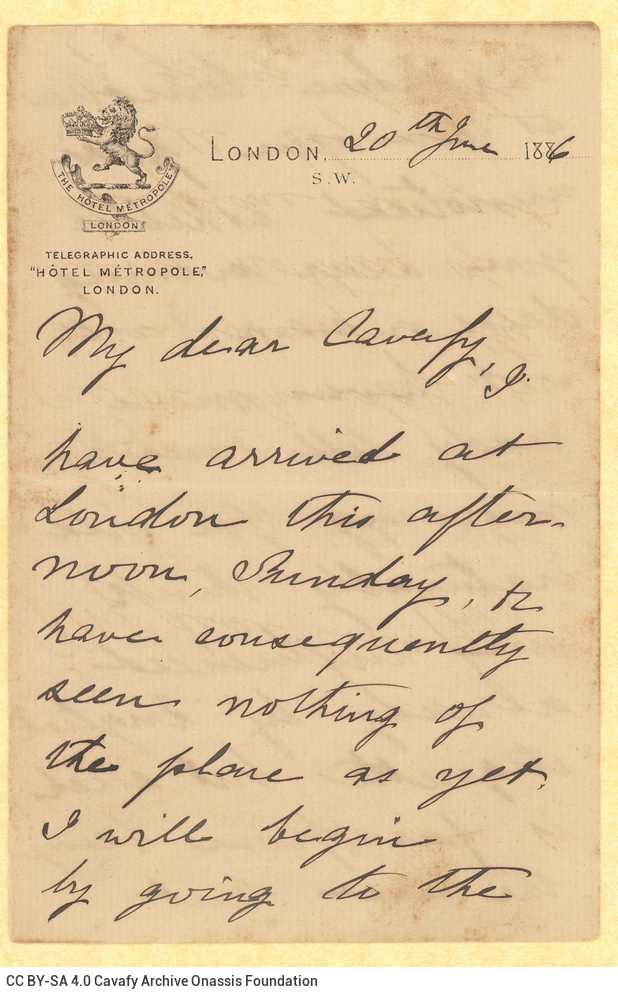 THE HÔTEL MÉTROPOLE
LONDON
LONDON, 20th June 1886
S.W.
TELEGRAPHIC ADDRESS,
"HÔTEL MÉTROPOLE,"
LONDON.
My dear Cavafy, I
have arrived at
London this after-
noon, Sunday, &
have consequently
seen nothing of
the place as yet.
I will begin
by going to the
CC BY-SA 4.0 Cavafy Archive Onassis Foundation